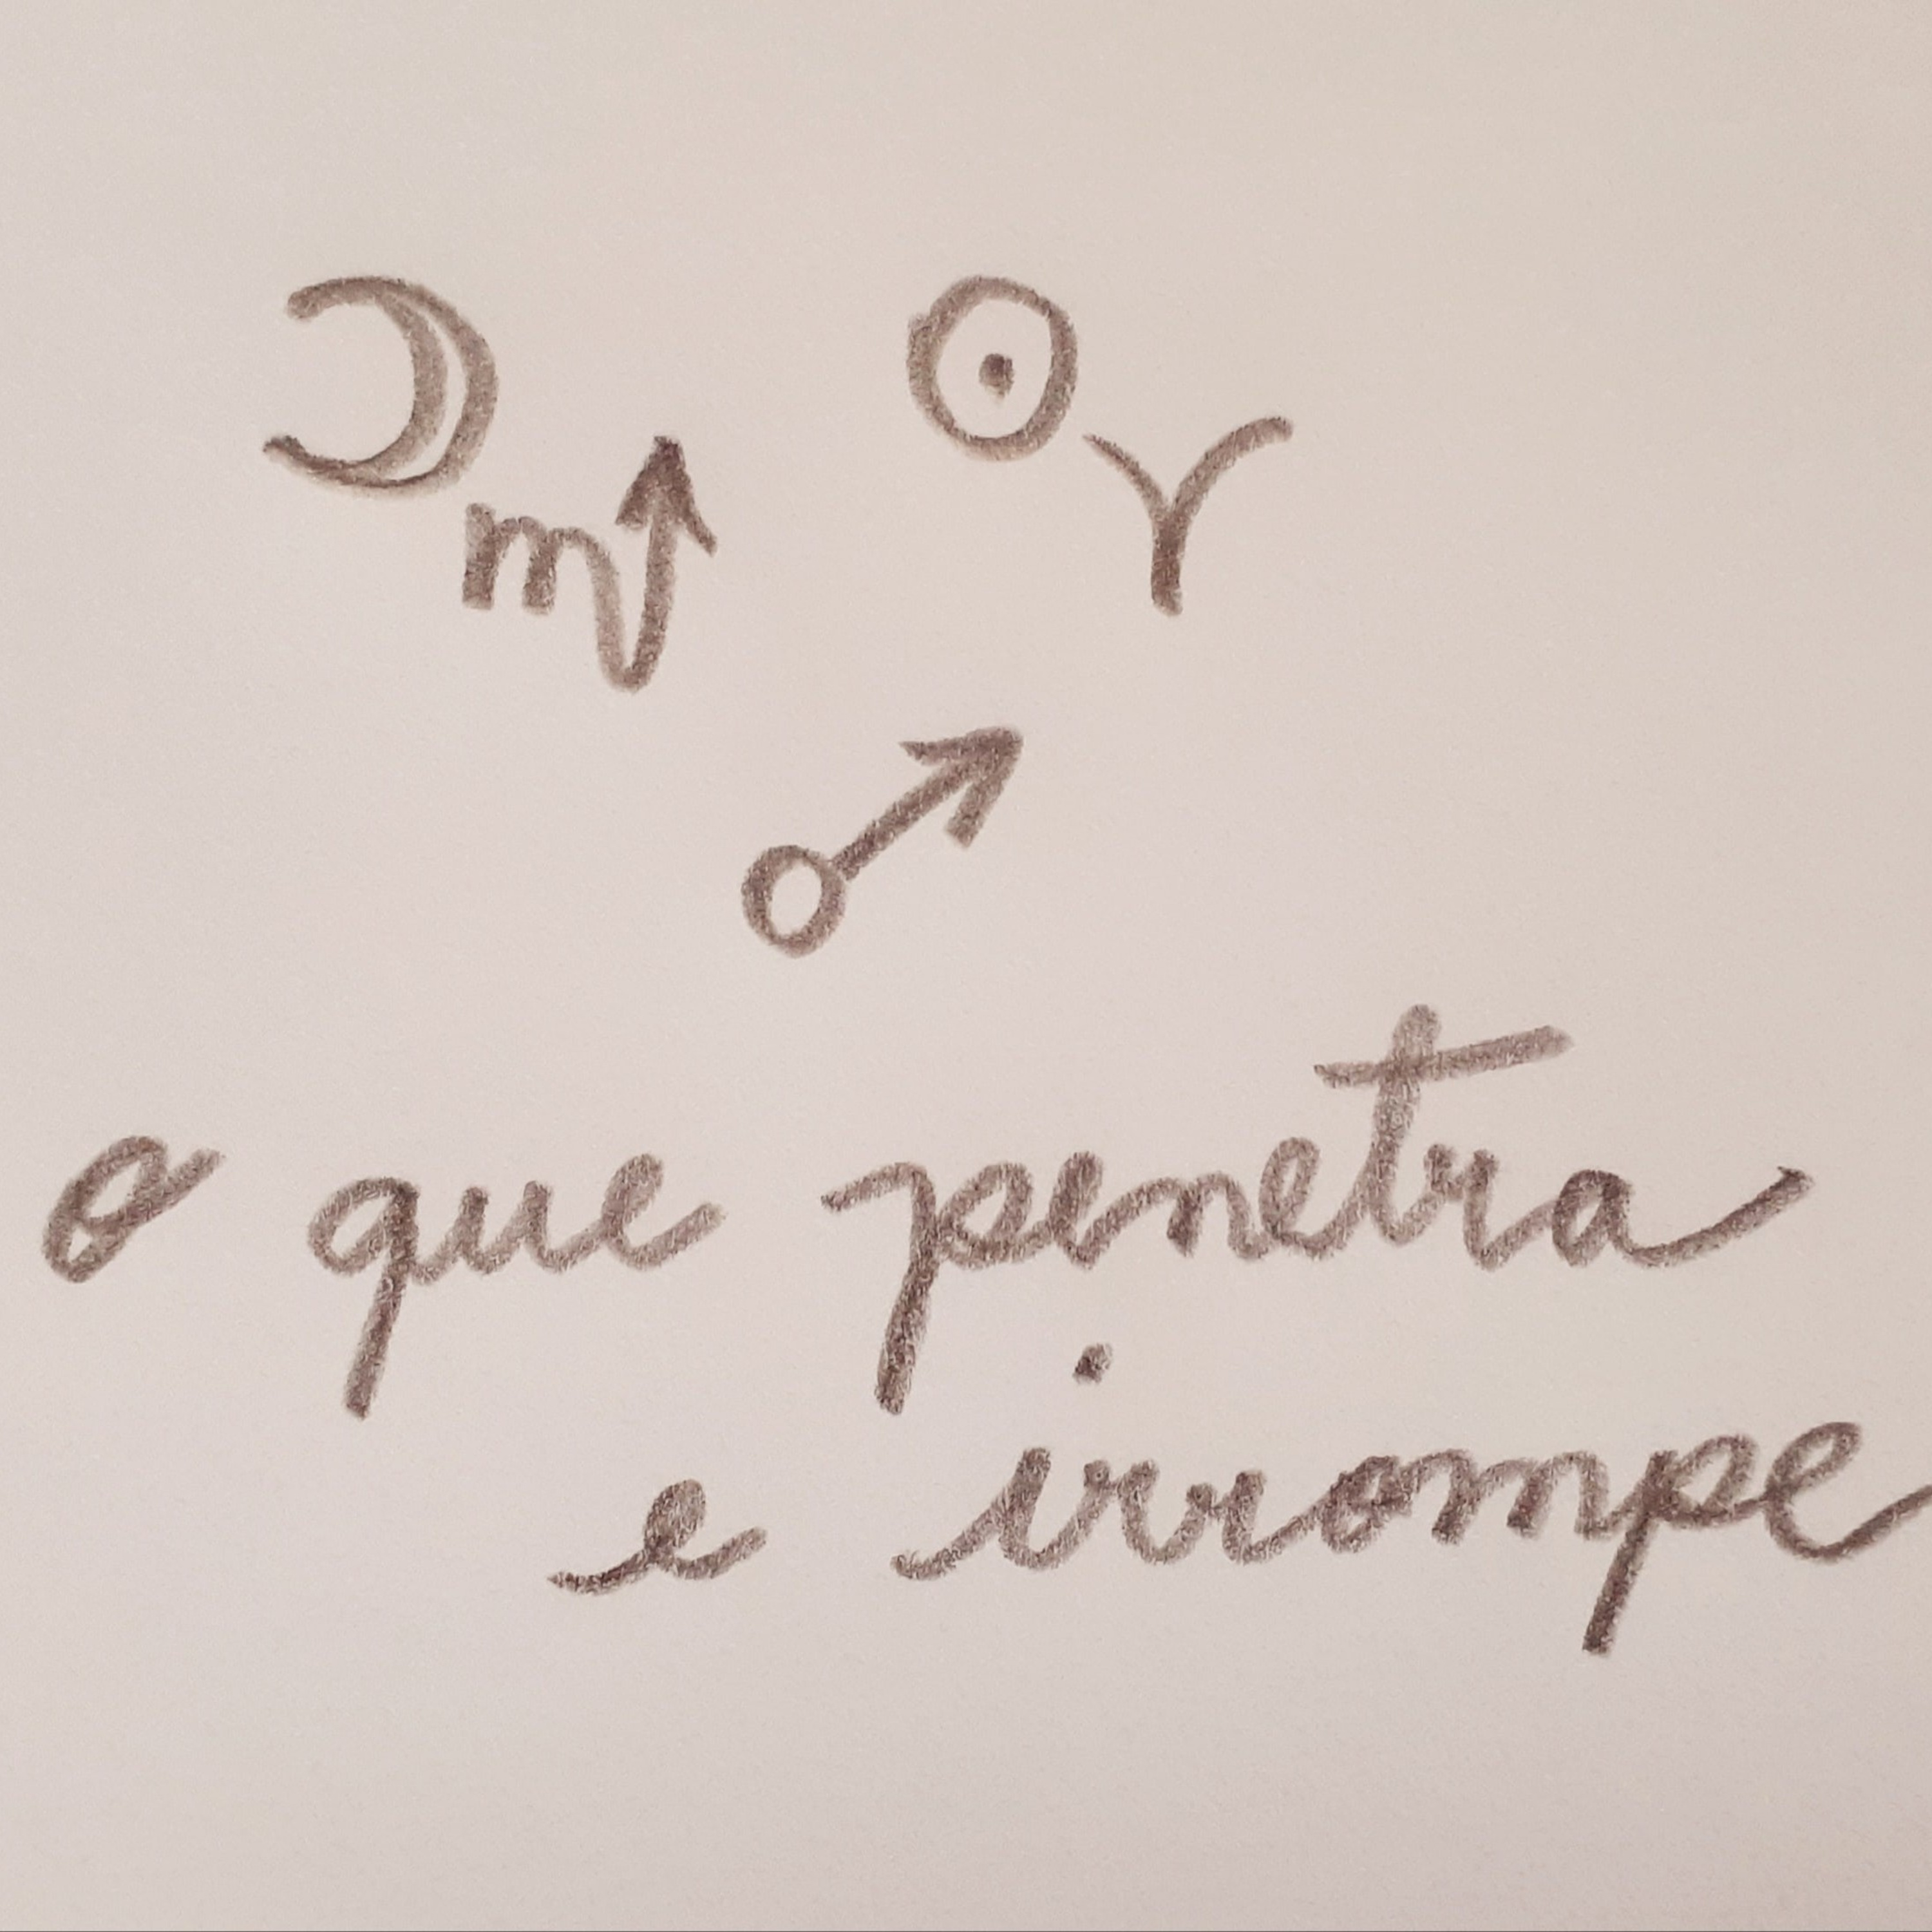 ☽ ☉
♏ ♈
♂
o que penetra
e irrompe